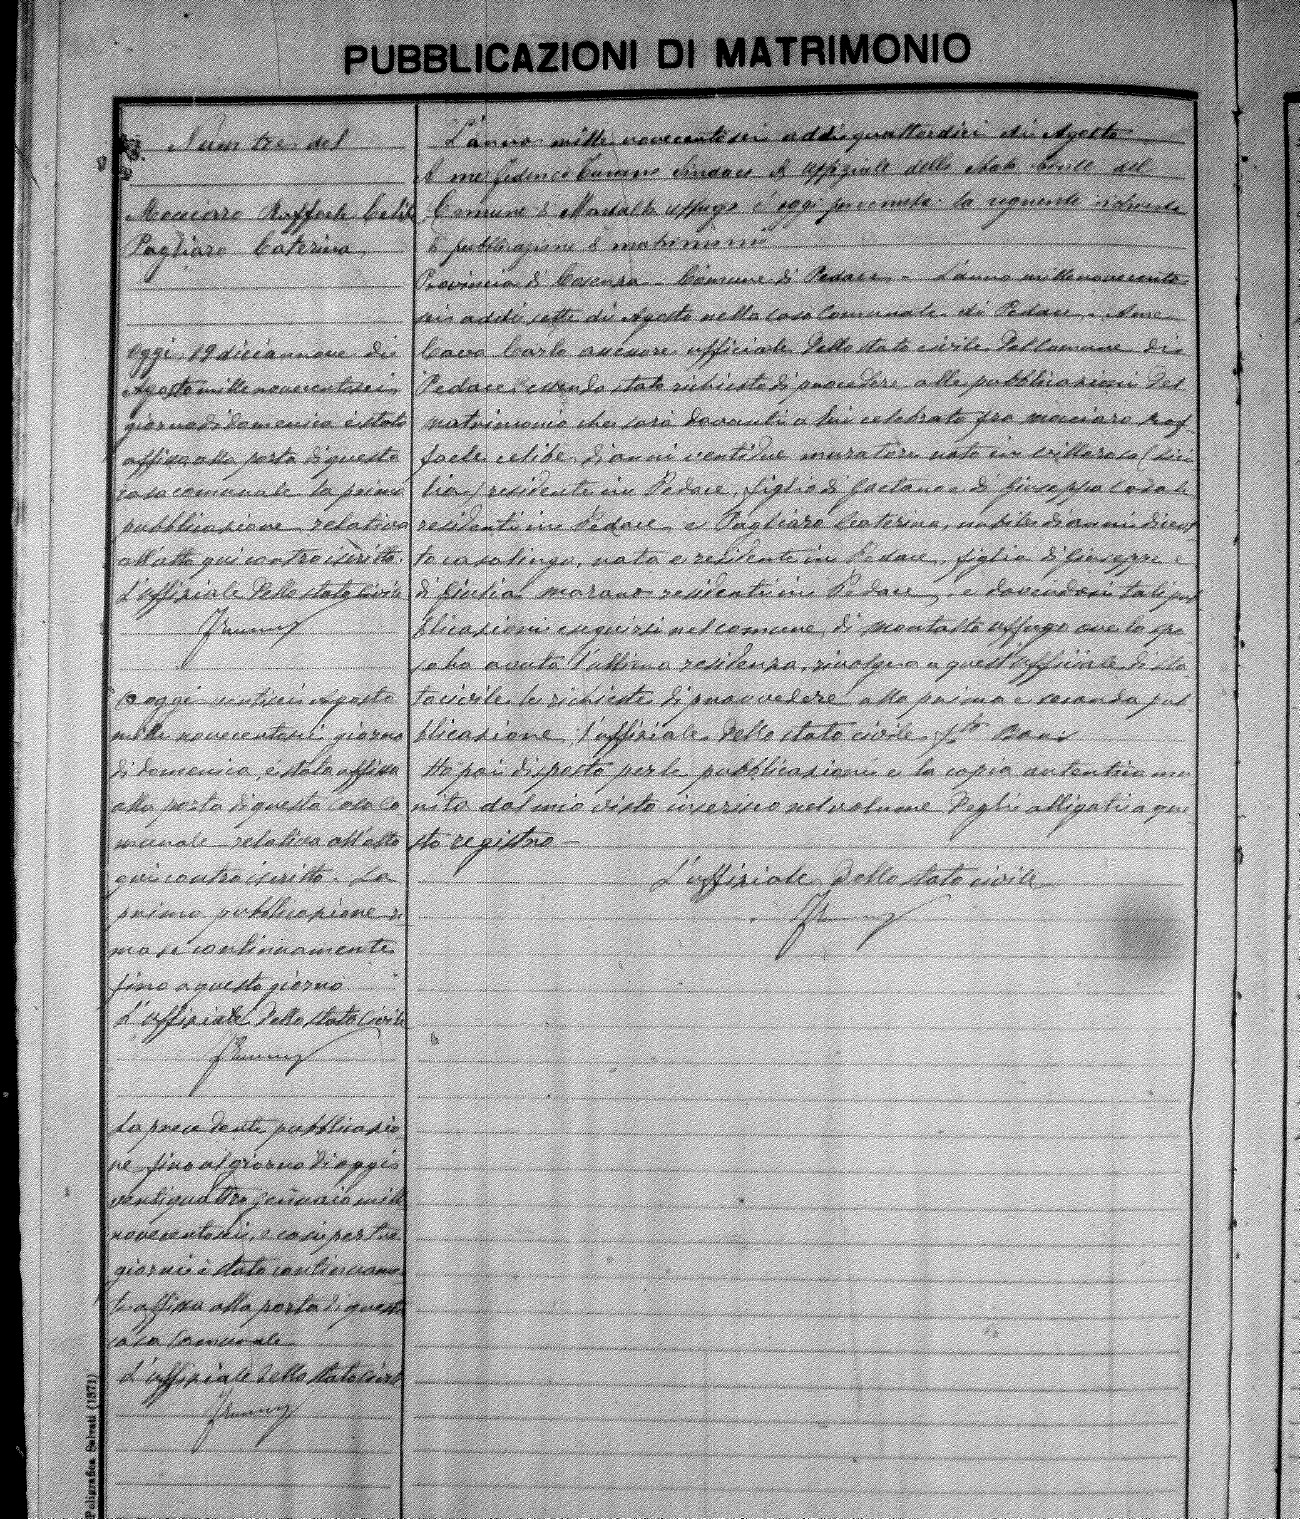 PUBBLICAZIONI DI MATRIMONIO
Num tre del
Macciarro Raffaele Celibe
Pagliaro Caterina
Oggi 19 diciannove di
Agosto mille novecentosei
giorno di domenica è stato
affissa alla porta di questa
casa comunale la prima
pubblicazione relativa
all'atto qui controscritto.
L'uffiziale dello stato civile
Oggi ventisei Agosto
mille novecentosei giorno
di domenica, è stata affissa
alla porta di questa casa co
munale relativa all'atto
qui controscritto. La
prima pubblicazione ri
mase continuamente
fino a questo giorno
L'uffiziale dello stato Civile
La precedente pubblicazio
ne fino al giorno di oggi
ventiquattro gennaio mille
novecentosei, e così per tre
giorni è stata continuamen
te affissa alla porta di questa
casa Comunale
L'uffiziale dello stato civile
L'anno mille novecentosei addi quattordici di Agosto
A me Federico Sindaco Uffiziale dello Stato Civile del
Comune di Montalto Uffugo è oggi pervenuta la seguente richiesta
di pubblicazione di matrimonio
Provincia di Cosenza - Comune di Pedace - L'anno millenovecento
sei addì sette di Agosto nella casa Comunale di Pedace. Avanti
Carlo assessore ufficiale dello stato civile del Comune di
Pedace essendo stato richiesto di procedere alle pubblicazioni del
matrimonio che sarà davanti a lui celebrato fra Macciaro Raf
faele celibe di anni ventidue muratore nato in Villarosa (Sici
lia) residente in Pedace, figlio di Gaetano e di Giuseppa
residenti in Pedace e Pagliaro Caterina, nubile di anni diciot
to casalinga, nata e residente in Pedace, figlia di Giuseppe e
di Giulia Marano residenti in Pedace, e dovendosi tali pub
blicazioni eseguirsi nel comune di Montalto Uffugo ove lo spo
so ha avuto l'ultima residenza, rivolgo a quest'uffiziale di sta
to civile le richieste di provvedere alla prima e seconda pub
blicazione, l'uffiziale dello stato civile
Ho poi disposto per le pubblicazioni e la copia autentica mu
nita dal mio visto inserisco nel volume degli alligati a que
sto registro
L'uffiziale dello stato civile
Poligrafica Salvati (1371)